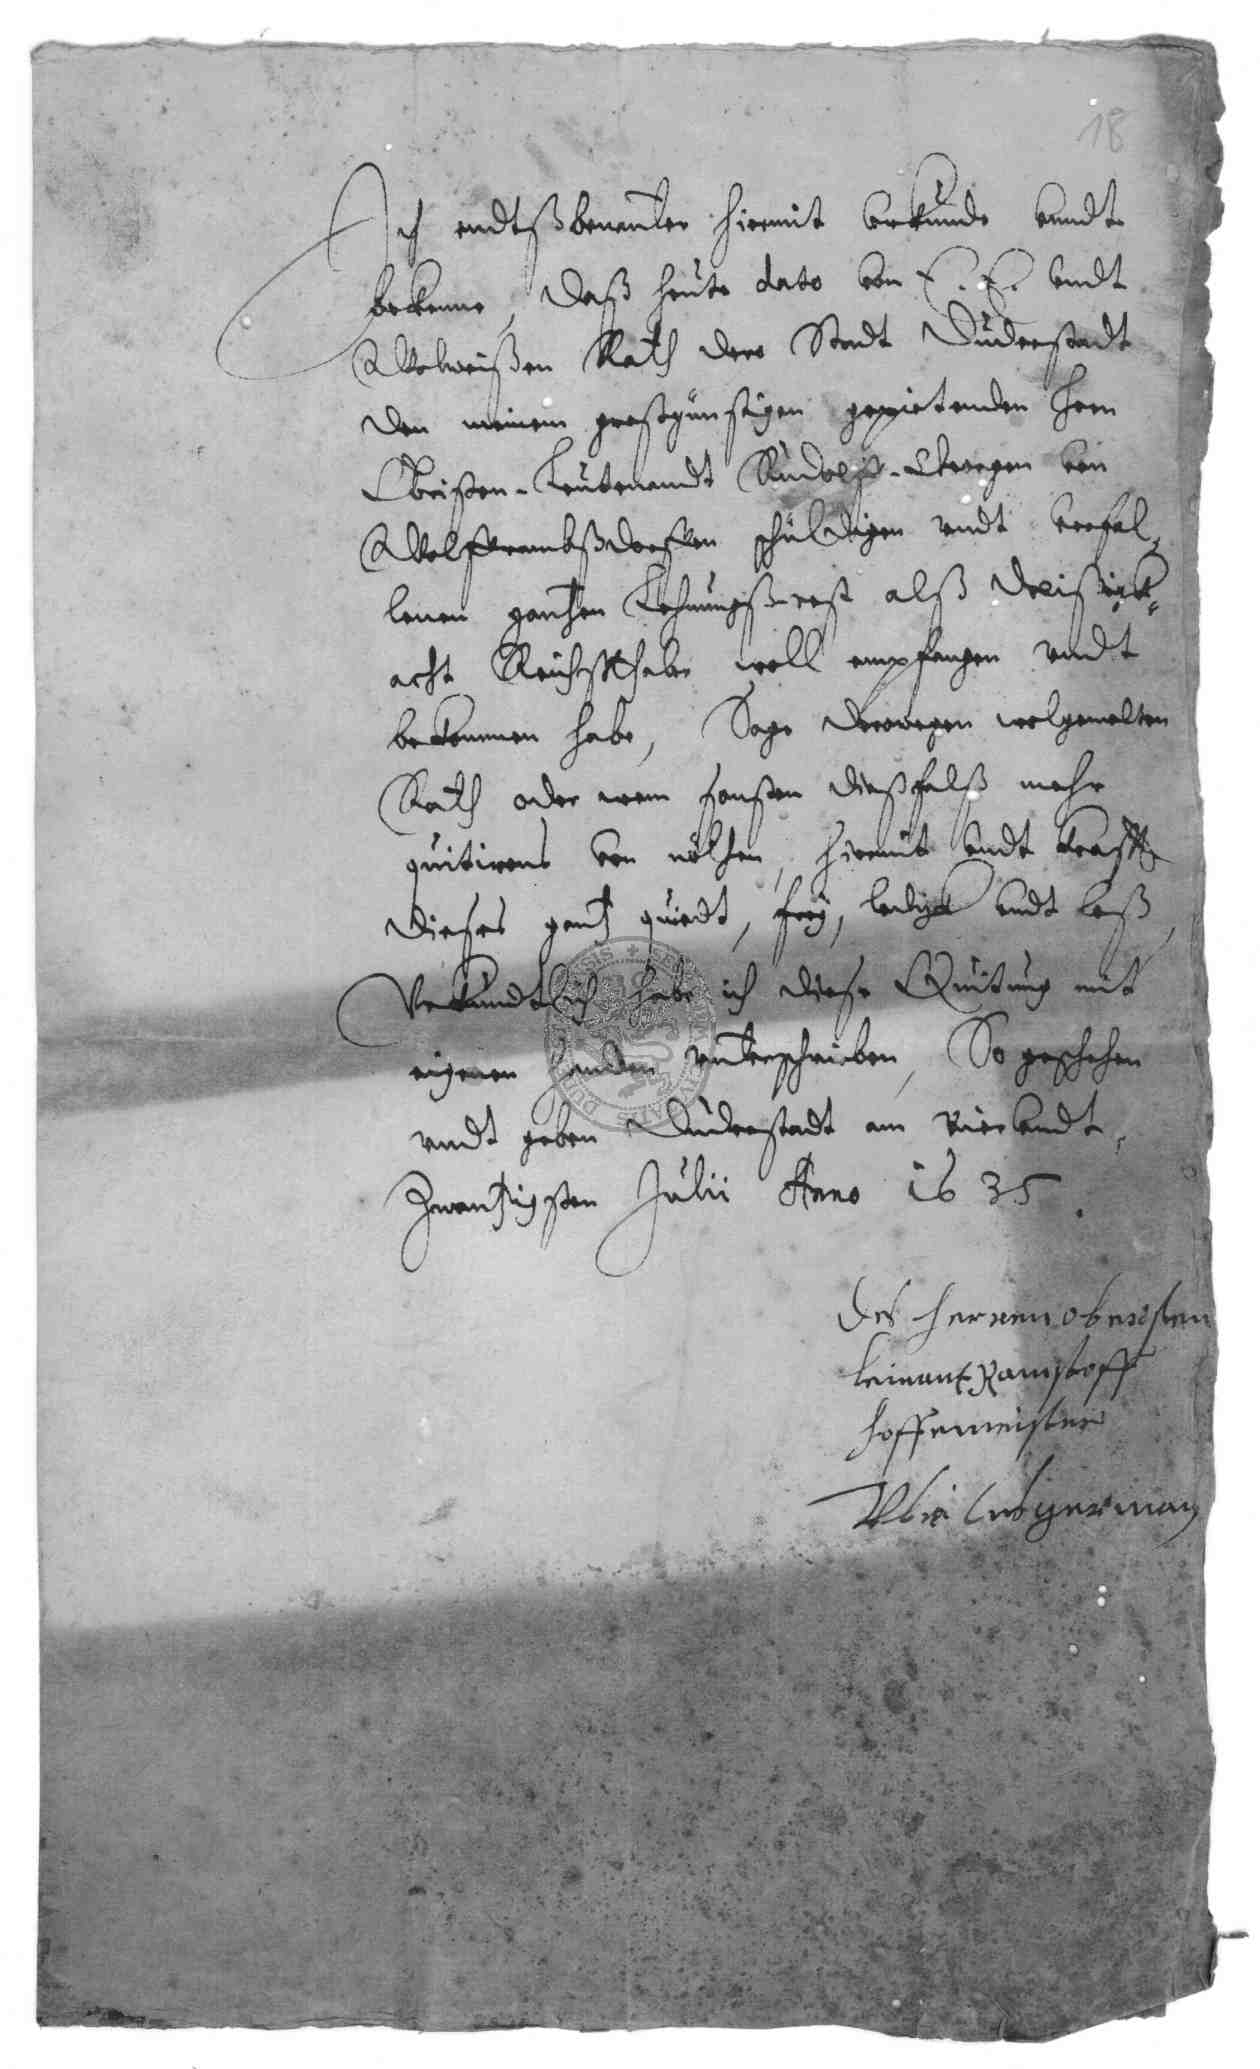 18
Ich endtßbenanter hiermit Urkunde unndt
bekenne, daß heute dato von E. E. undt
Wolweißen Rath der Stadt Duderstadt
den meinem großgünstigen gepietenden Hern
Obristen-Leutenandt Rudolff
schuldigen undt verfal,
lenen gantzen Lehnungß-rest alß dreißigk
acht Reichsthaler woll empfangen undt
bekommen habe, Sage derowegen wolgemelten
Rath oder wem sonsten dießfalß mehr
quitirens von nöthen, hiermit undt krafft
dieses gantz quiedt, frey, ledigk undt loß,
Urkundtlich habe ich diese Quitung mit
eigenen handen unterschrieben, So geschehen
undt geben Duderstadt am vierundt,
Zwantzigsten Julii Anno 1635.
Des herren obersten
leinant
hoffemeister